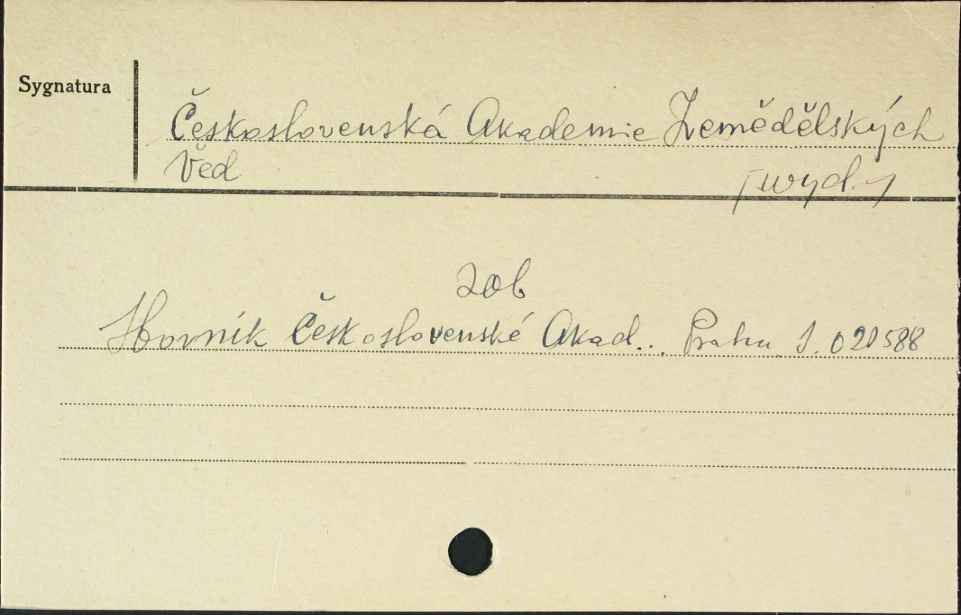 Sygnatura
Československá Akademie Zemědělských
Věd
[wyd.]
zob
Sborník Československé Akad... Praha S. 020588